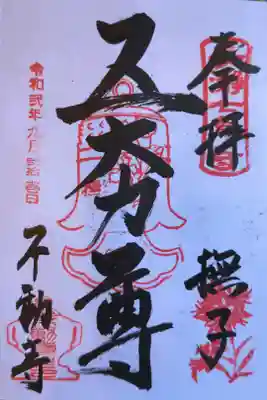 奉拝
撫子
五大力尊
令和弐年九月
不動寺